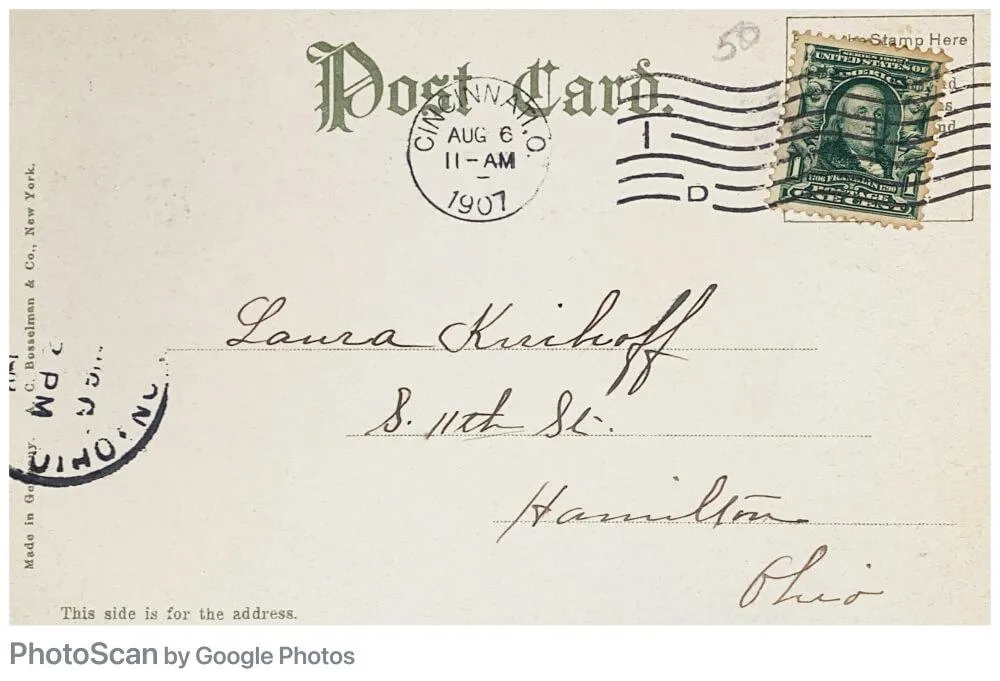 50
Post Card.
Stamp Here
CINCINNATI, O.
AUG 6
11-AM
1907
I
D
SERIES 1902
UNITED STATES OF
AMERICA
1706 FRANKLIN 1790
POSTAGE
1 ONE CENT 1
Laura Kirchoff
S. 11th St.
Hamilton
Ohio
Made in Germany. A. C. Bosselman & Co., New York.
PM
OHIO
This side is for the address.
PhotoScan by Google Photos